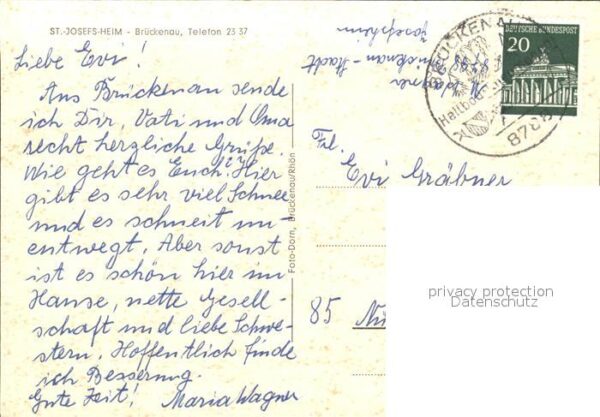 ST.-JOSEFS-HEIM - Brückenau, Telefon 23 37
Liebe Evi!
Aus Brückenau sende
ich Dir, Vati und Oma
recht herzliche Grüße.
Wie geht es Euch? Hier
gibt es sehr viel Schnee
und es schneit un-
entwegt. Aber sonst
ist es schön hier im
Hause, nette Gesell-
schaft und liebe Schwe-
stern. Hoffentlich finde
ich Besserung.
Gute Zeit! Maria Wagner
Foto-Dorn, Brückenau/Rhön
M. Wagner
Brückenau - Stadt
Josefsheim
BRÜCKENAU
Heilbad
8788
DEUTSCHE BUNDESPOST
20
Frl.
Evi Gräbner
85 Nü
privacy protection
Datenschutz